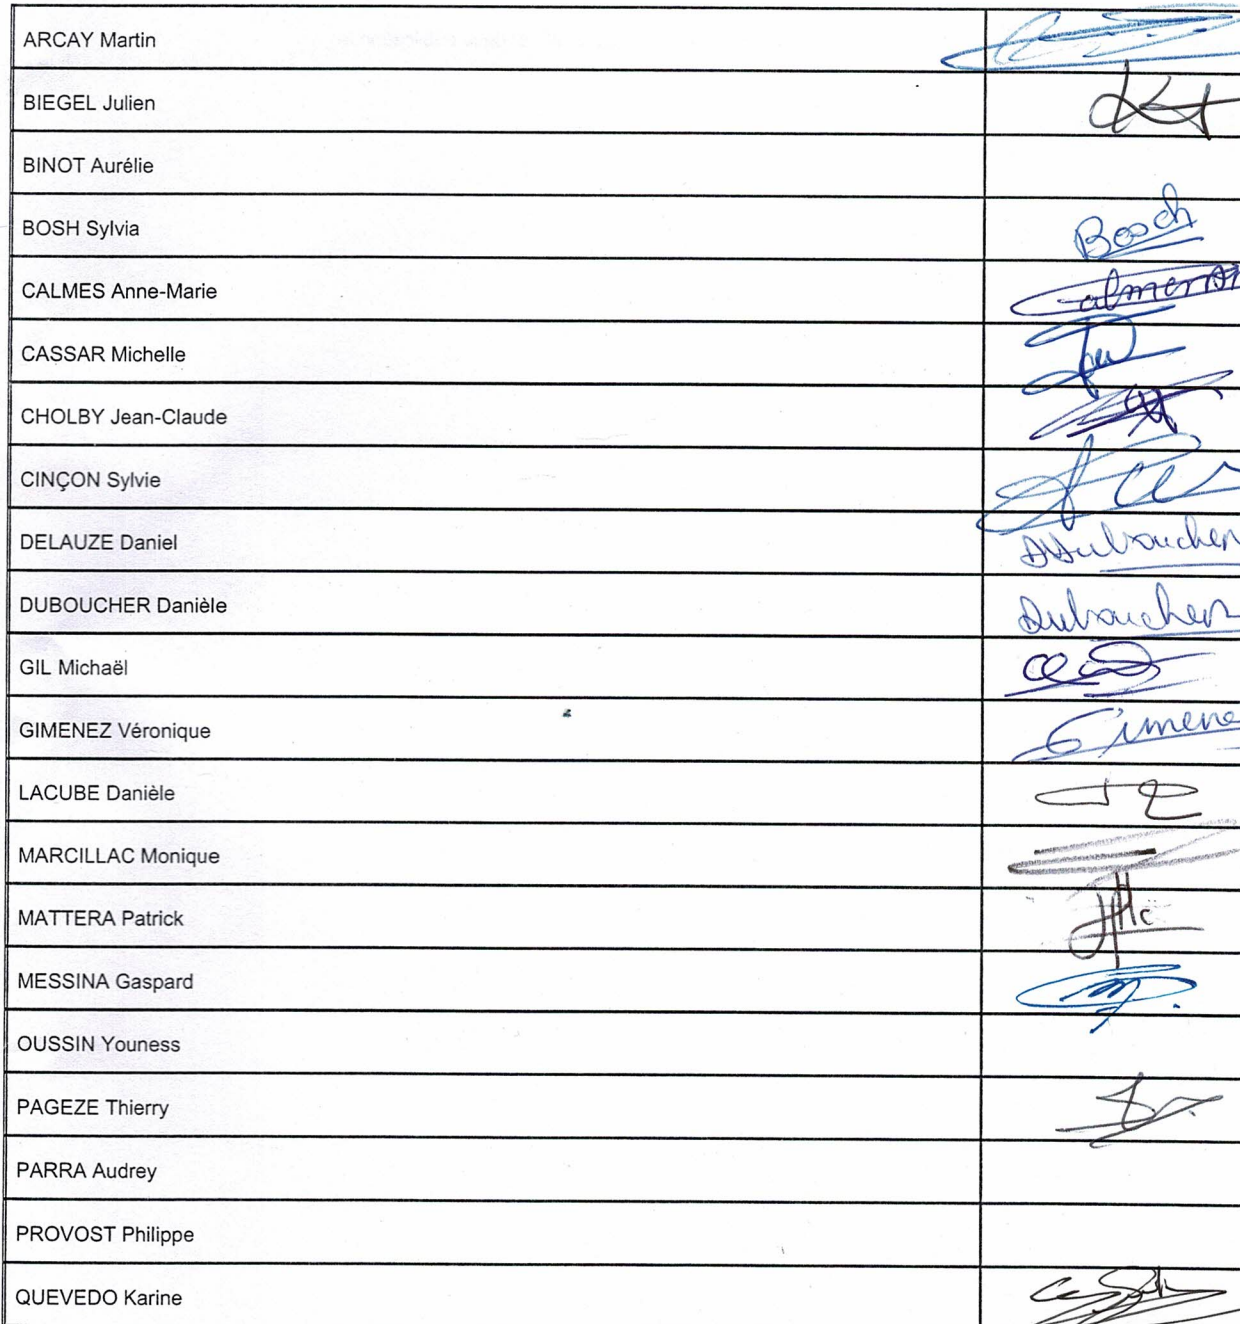 ARCAY Martin
BIEGEL Julien
BINOT Aurélie
BOSH Sylvia
Bosch
CALMES Anne-Marie
CASSAR Michelle
CHOLBY Jean-Claude
CINÇON Sylvie
DELAUZE Daniel
DUBOUCHER Danièle
Duboucher
GIL Michaël
GIMENEZ Véronique
Gimene
LACUBE Danièle
MARCILLAC Monique
MATTERA Patrick
MESSINA Gaspard
OUSSIN Youness
PAGEZE Thierry
PARRA Audrey
PROVOST Philippe
QUEVEDO Karine